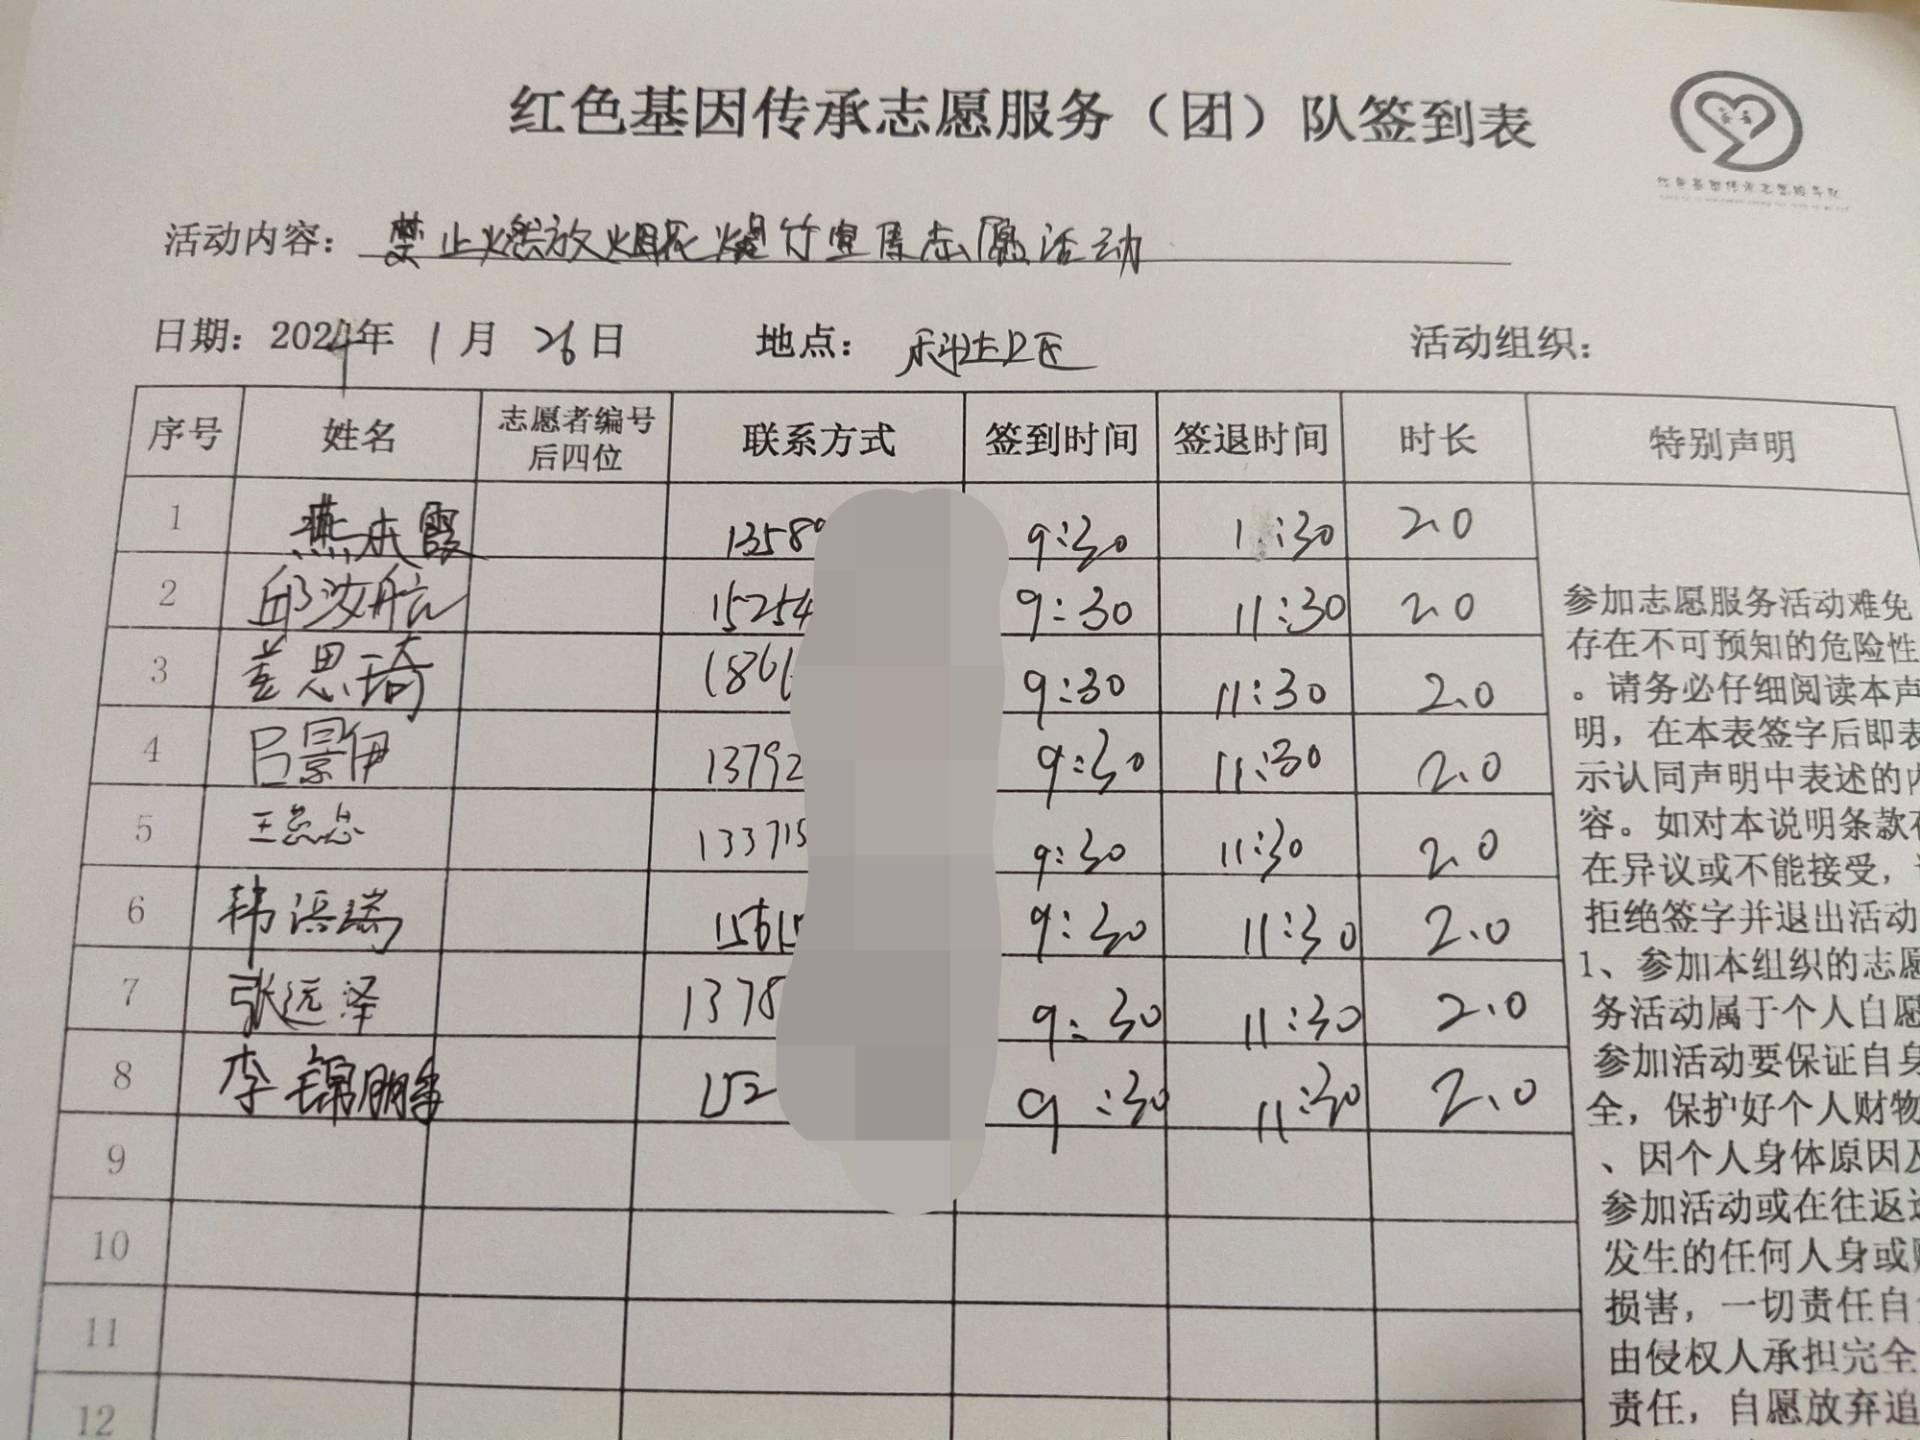 红色基因传承志愿服务（团）队签到表
活动内容：禁止燃放烟花爆竹宣传志愿活动
日期：2024年 1月 26日 地点： 社区 活动组织：
序号 姓名 志愿者编号后四位 联系方式 签到时间 签退时间 时长 特别声明
1 燕 霞 1358 9:30 11:30 2.0
2 邱汝航 15254 9:30 11:30 2.0
3 姜思琦 1866 9:30 11:30 2.0
4 吕景伊 13792 9:30 11:30 2.0
5 王 133715 9:30 11:30 2.0
6 韩滨瑞 15615 9:30 11:30 2.0
7 张远泽 1378 9:30 11:30 2.0
8 李锦鹏 152 9:30 11:30 2.0
9
10
11
12
参加志愿服务活动难免
存在不可预知的危险性
。请务必仔细阅读本声
明，在本表签字后即表
示认同声明中表述的内
容。如对本说明条款存
在异议或不能接受，
拒绝签字并退出活动
1、参加本组织的志愿
务活动属于个人自愿
参加活动要保证自身
全，保护好个人财物
、因个人身体原因及
参加活动或在往返
发生的任何人身或财
损害，一切责任自
由侵权人承担完全
责任，自愿放弃追